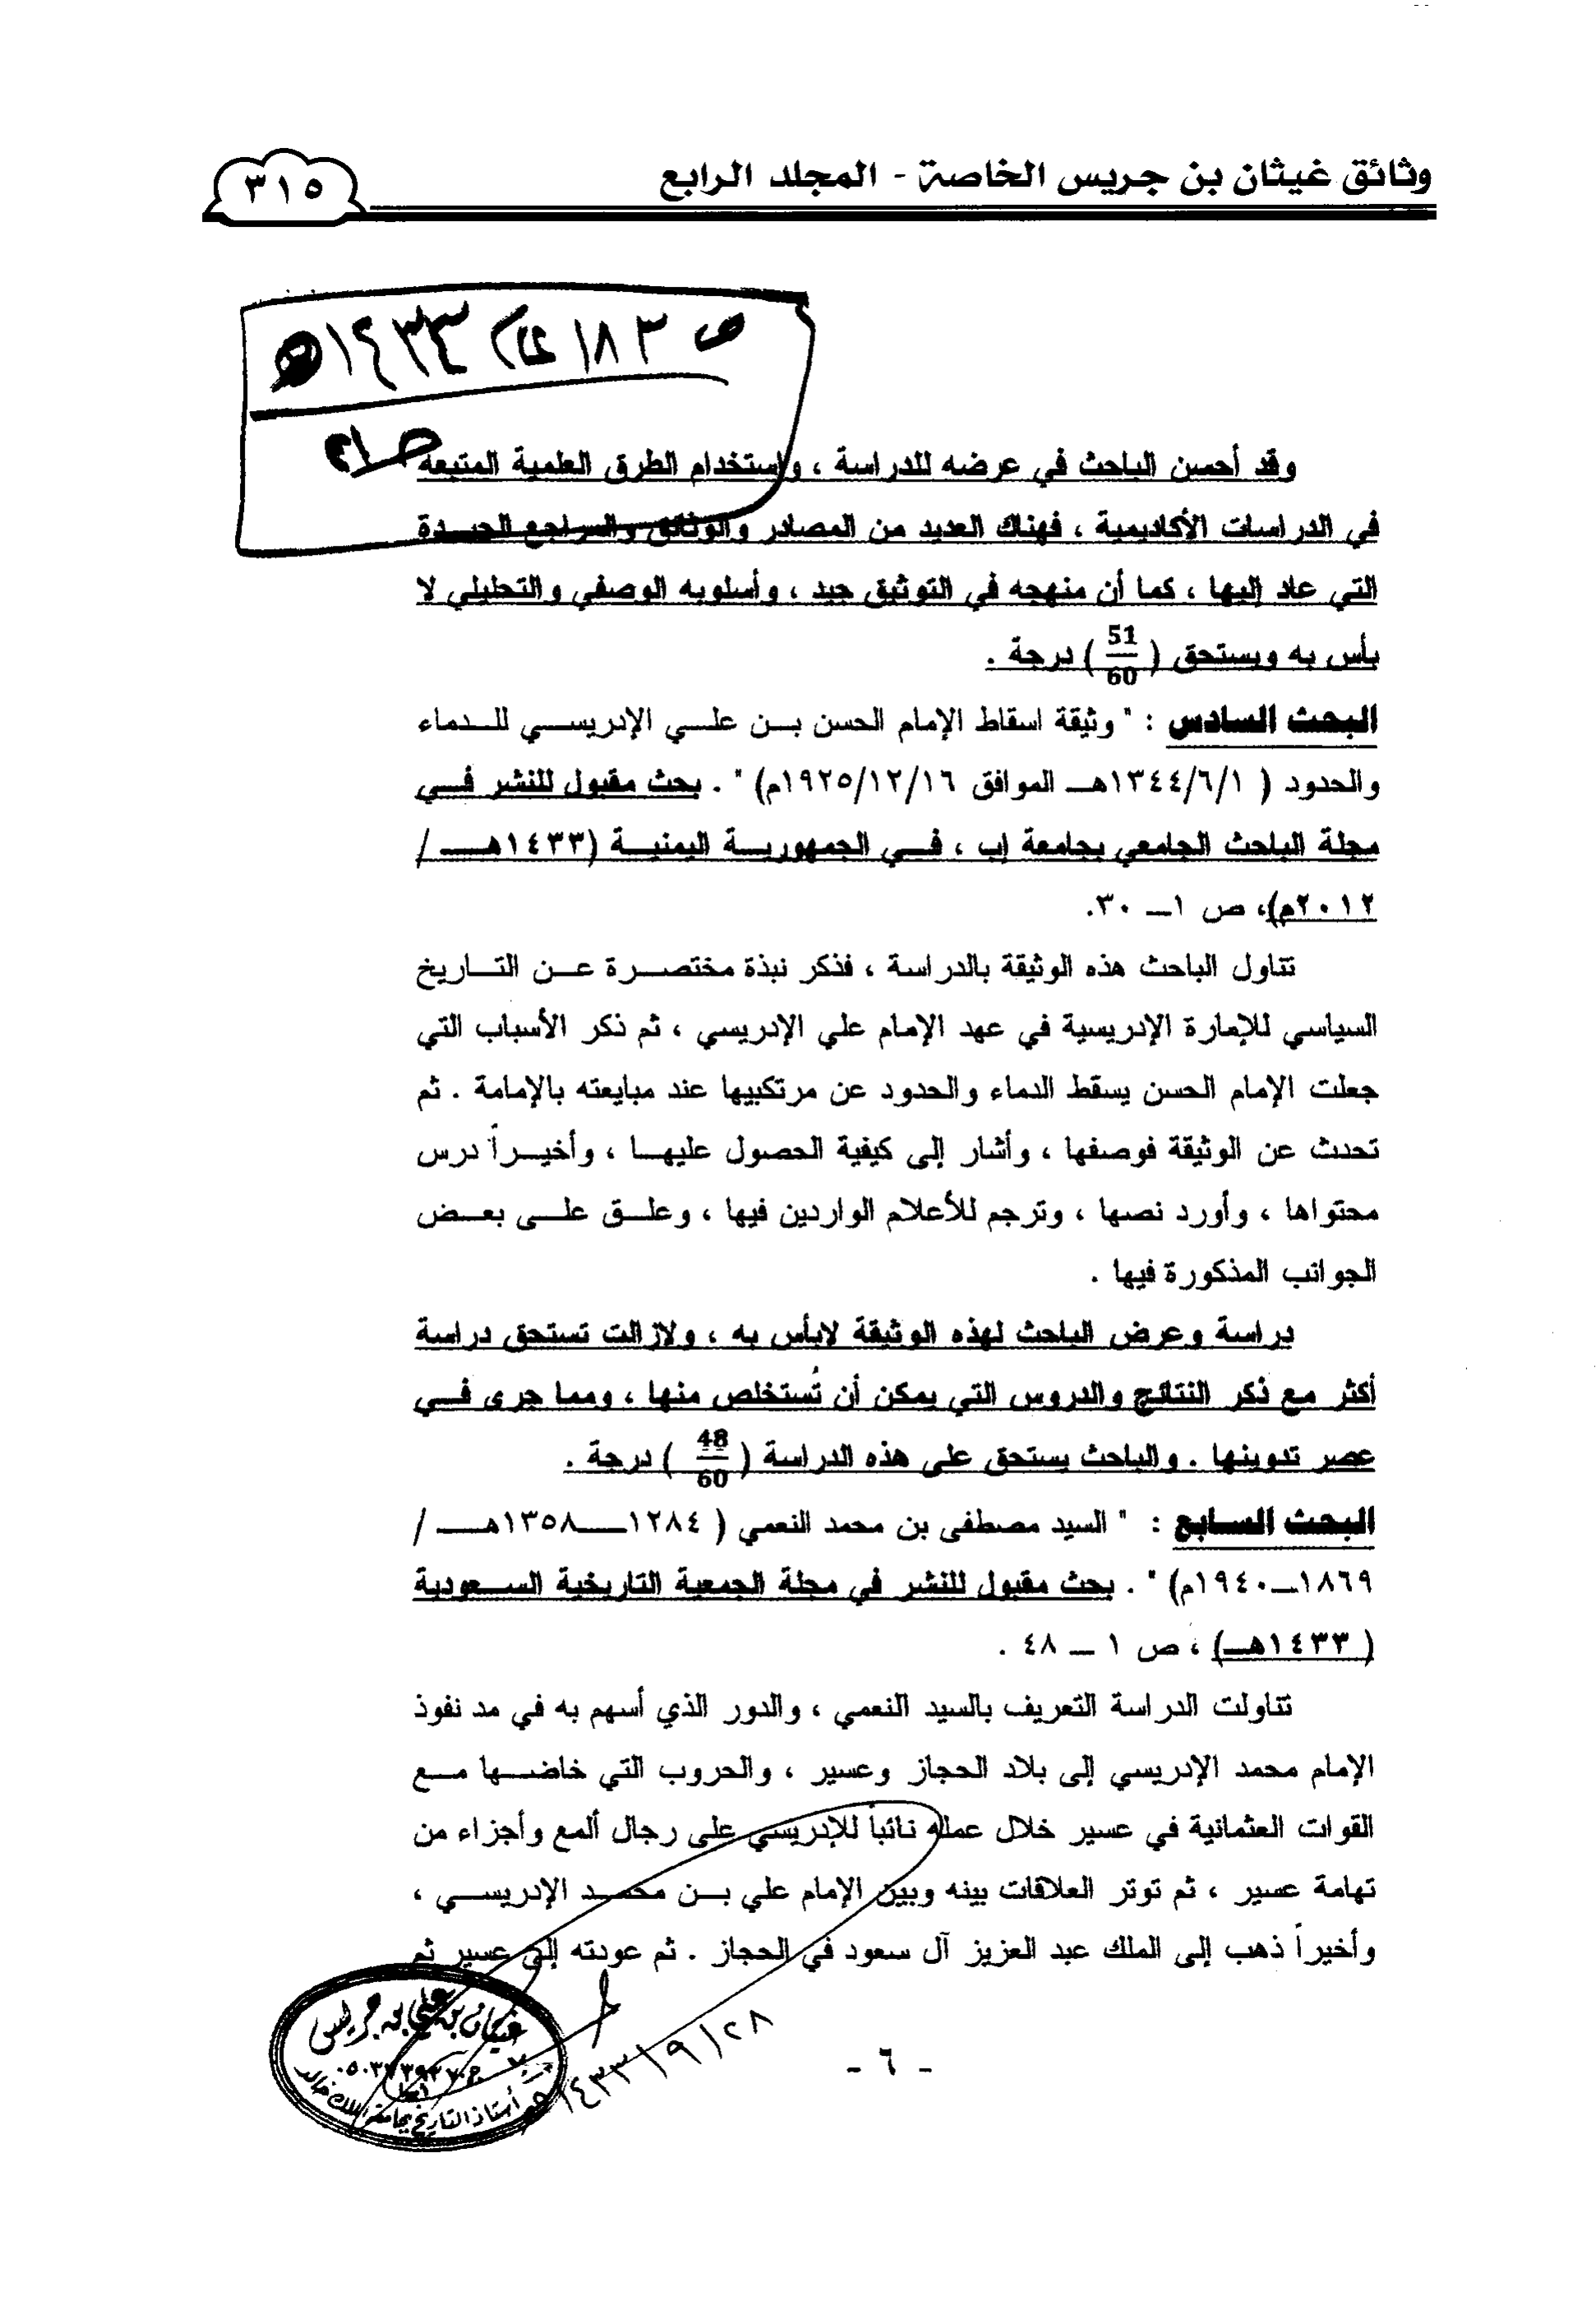 وثائق غيثان بن جريس الخاصة - المجلد الرابع
٣١٥
ص ١٨٣ عام ١٤٣٣هـ
وقد أحسن الباحث في عرضه للدراسة ، واستخدام الطرق العلمية المتبعه
في الدراسات الأكاديمية ، فهناك العديد من المصادر والوثائق والمراجع الجيـــدة
التي عاد إليها ، كما أن منهجه في التوثيق جيد ، وأسلوبه الوصفي والتحليلي لا
بأس به ويستحق ( 51/60 ) درجة .
البحث السادس : " وثيقة اسقاط الإمام الحسن بــن علــي الإدريســي للــدماء
والحدود ( ١٣٤٤/٦/١هــ الموافق ١٩٢٥/١٢/١٦م) " . بحث مقبول للنشر فــي
مجلة الباحث الجامعي بجامعة إب ، فــي الجمهوريــة اليمنيــة (١٤٣٣هـــ /
٢٠١٢م)، ص ١ــ ٣٠.
تناول الباحث هذه الوثيقة بالدراسة ، فذكر نبذة مختصــرة عــن التــاريخ
السياسي للإمارة الإدريسية في عهد الإمام علي الإدريسي ، ثم ذكر الأسباب التي
جعلت الإمام الحسن يسقط الدماء والحدود عن مرتكبيها عند مبايعته بالإمامة . ثم
تحدث عن الوثيقة فوصفها ، وأشار إلى كيفية الحصول عليهــا ، وأخيــراً درس
محتواها ، وأورد نصها ، وترجم للأعلام الواردين فيها ، وعلــق علــى بعــض
الجوانب المذكورة فيها .
دراسة وعرض الباحث لهذه الوثيقة لابأس به ، ولازالت تستحق دراسة
أكثر مع ذكر النتائج والدروس التي يمكن أن تُستخلص منها ، ومما جرى فــي
عصر تدوينها . والباحث يستحق على هذه الدراسة ( 48/60 ) درجة .
البحث السـابع : " السيد مصطفى بن محمد النعمي ( ١٢٨٤ـــ١٣٥٨هـــ /
١٨٦٩ــ١٩٤٠م) " . بحث مقبول للنشر في مجلة الجمعية التاريخية الســعودية
( ١٤٣٣هــ) ، ص ١ ــ ٤٨ .
تناولت الدراسة التعريف بالسيد النعمي ، والدور الذي أسهم به في مد نفوذ
الإمام محمد الإدريسي إلى بلاد الحجاز وعسير ، والحروب التي خاضــها مــع
القوات العثمانية في عسير خلال عمله نائباً للإدريسي على رجال ألمع وأجزاء من
تهامة عسير ، ثم توتر العلاقات بينه وبين الإمام علي بــن محمــد الإدريســي ،
وأخيراً ذهب إلى الملك عبد العزيز آل سعود في الحجاز . ثم عودته إلى عسير ثم
غيثان بن علي بن جريس
أستاذ التاريخ بجامعة الملك خالد
١٤٣٣/٩/٢٨
- ٦ -